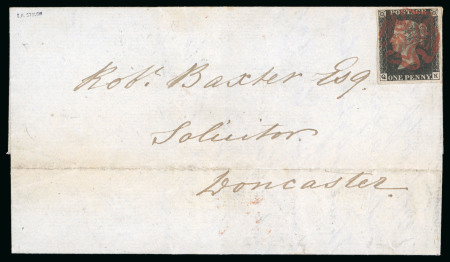 POSTAGE
ONE PENNY
Robt. Baxter Esq.
Solicitor.
Doncaster.